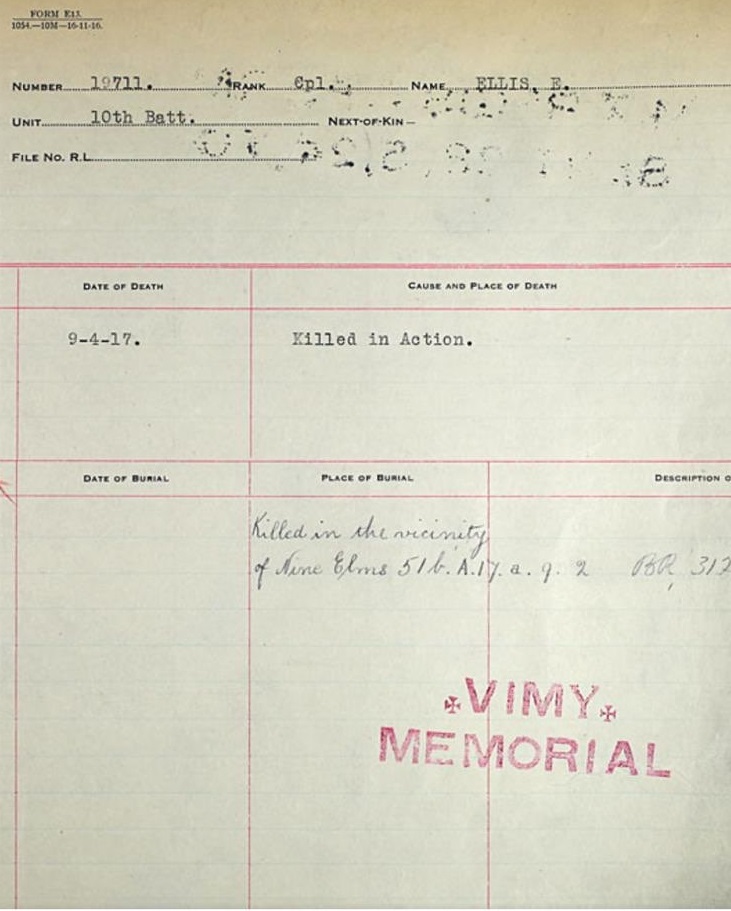 FORM E13.
1054.—10M—16-11-16.
NUMBER 19711. RANK Cpl. NAME ELLIS, E.
UNIT 10th Batt. NEXT-OF-KIN—
FILE NO. R.L.
DATE OF DEATH CAUSE AND PLACE OF DEATH
9-4-17. Killed in Action.
DATE OF BURIAL PLACE OF BURIAL DESCRIPTION O
Killed in the vicinity
of Nine Elms 51b. A.17. a. 9. 2 312
VIMY
MEMORIAL